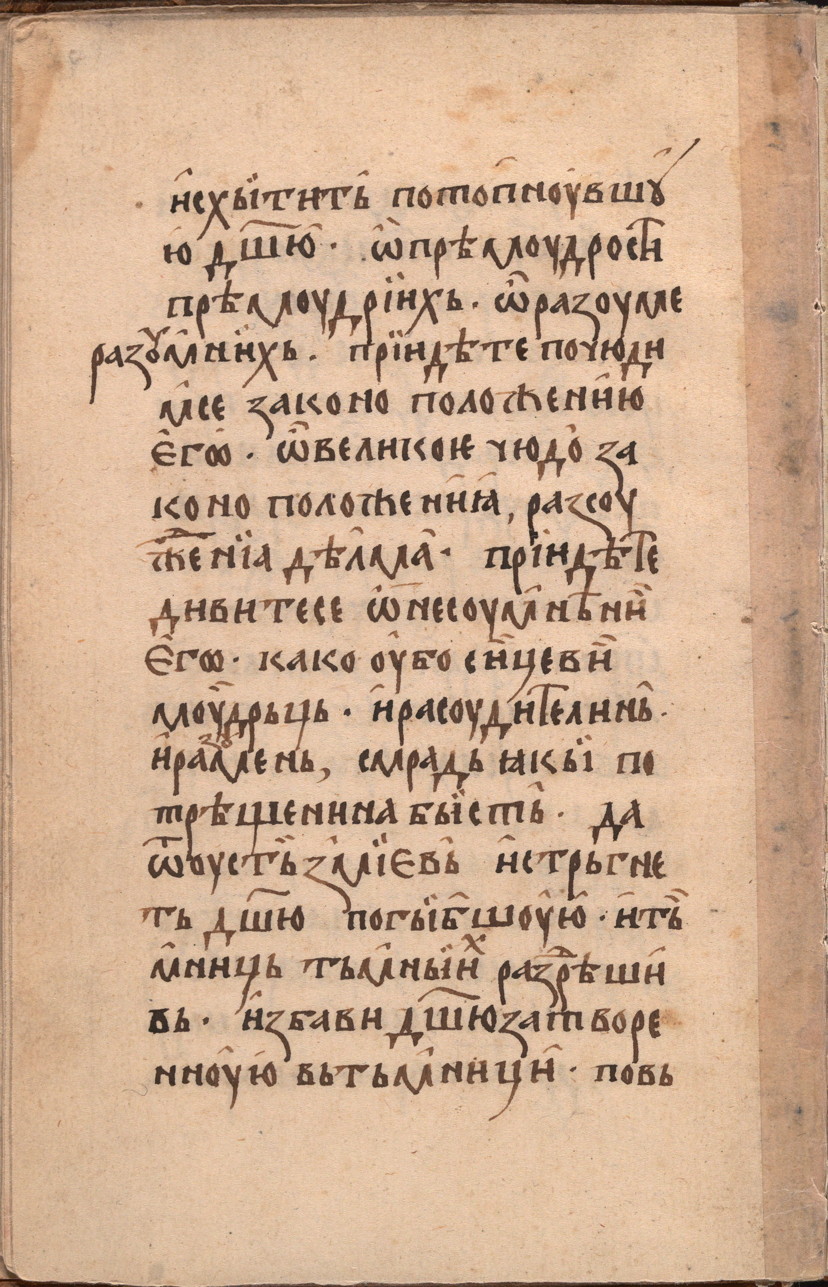 исхыⷮтитъ потопноувшꙋ
ю дш҃ю · ѽ прѣмоудрости
прѣмоудрїихь · ѽ разоуме
разꙋмнїихь · прїидѣте почюди
мсе законо положенїю
его̑ · ѽ великоѥ чюдо за
коно положенїа, разсоу
женїа дѣлма · прїидѣте
дивитесе ѽ несоумнѣни
его̑ · како оубо сицеви
моудрьць · и расоудителинь ·
и разꙋмень, смрадь ꙗкы по
трѣшенина бысть · да
ѿ оусть змїевь истрьгне
ть дш҃ю погыбшоую · и тъ
мниць тьмныиⷯ разрѣши
вь · избави дш҃ю затворе
нноую вь тьмници · повь